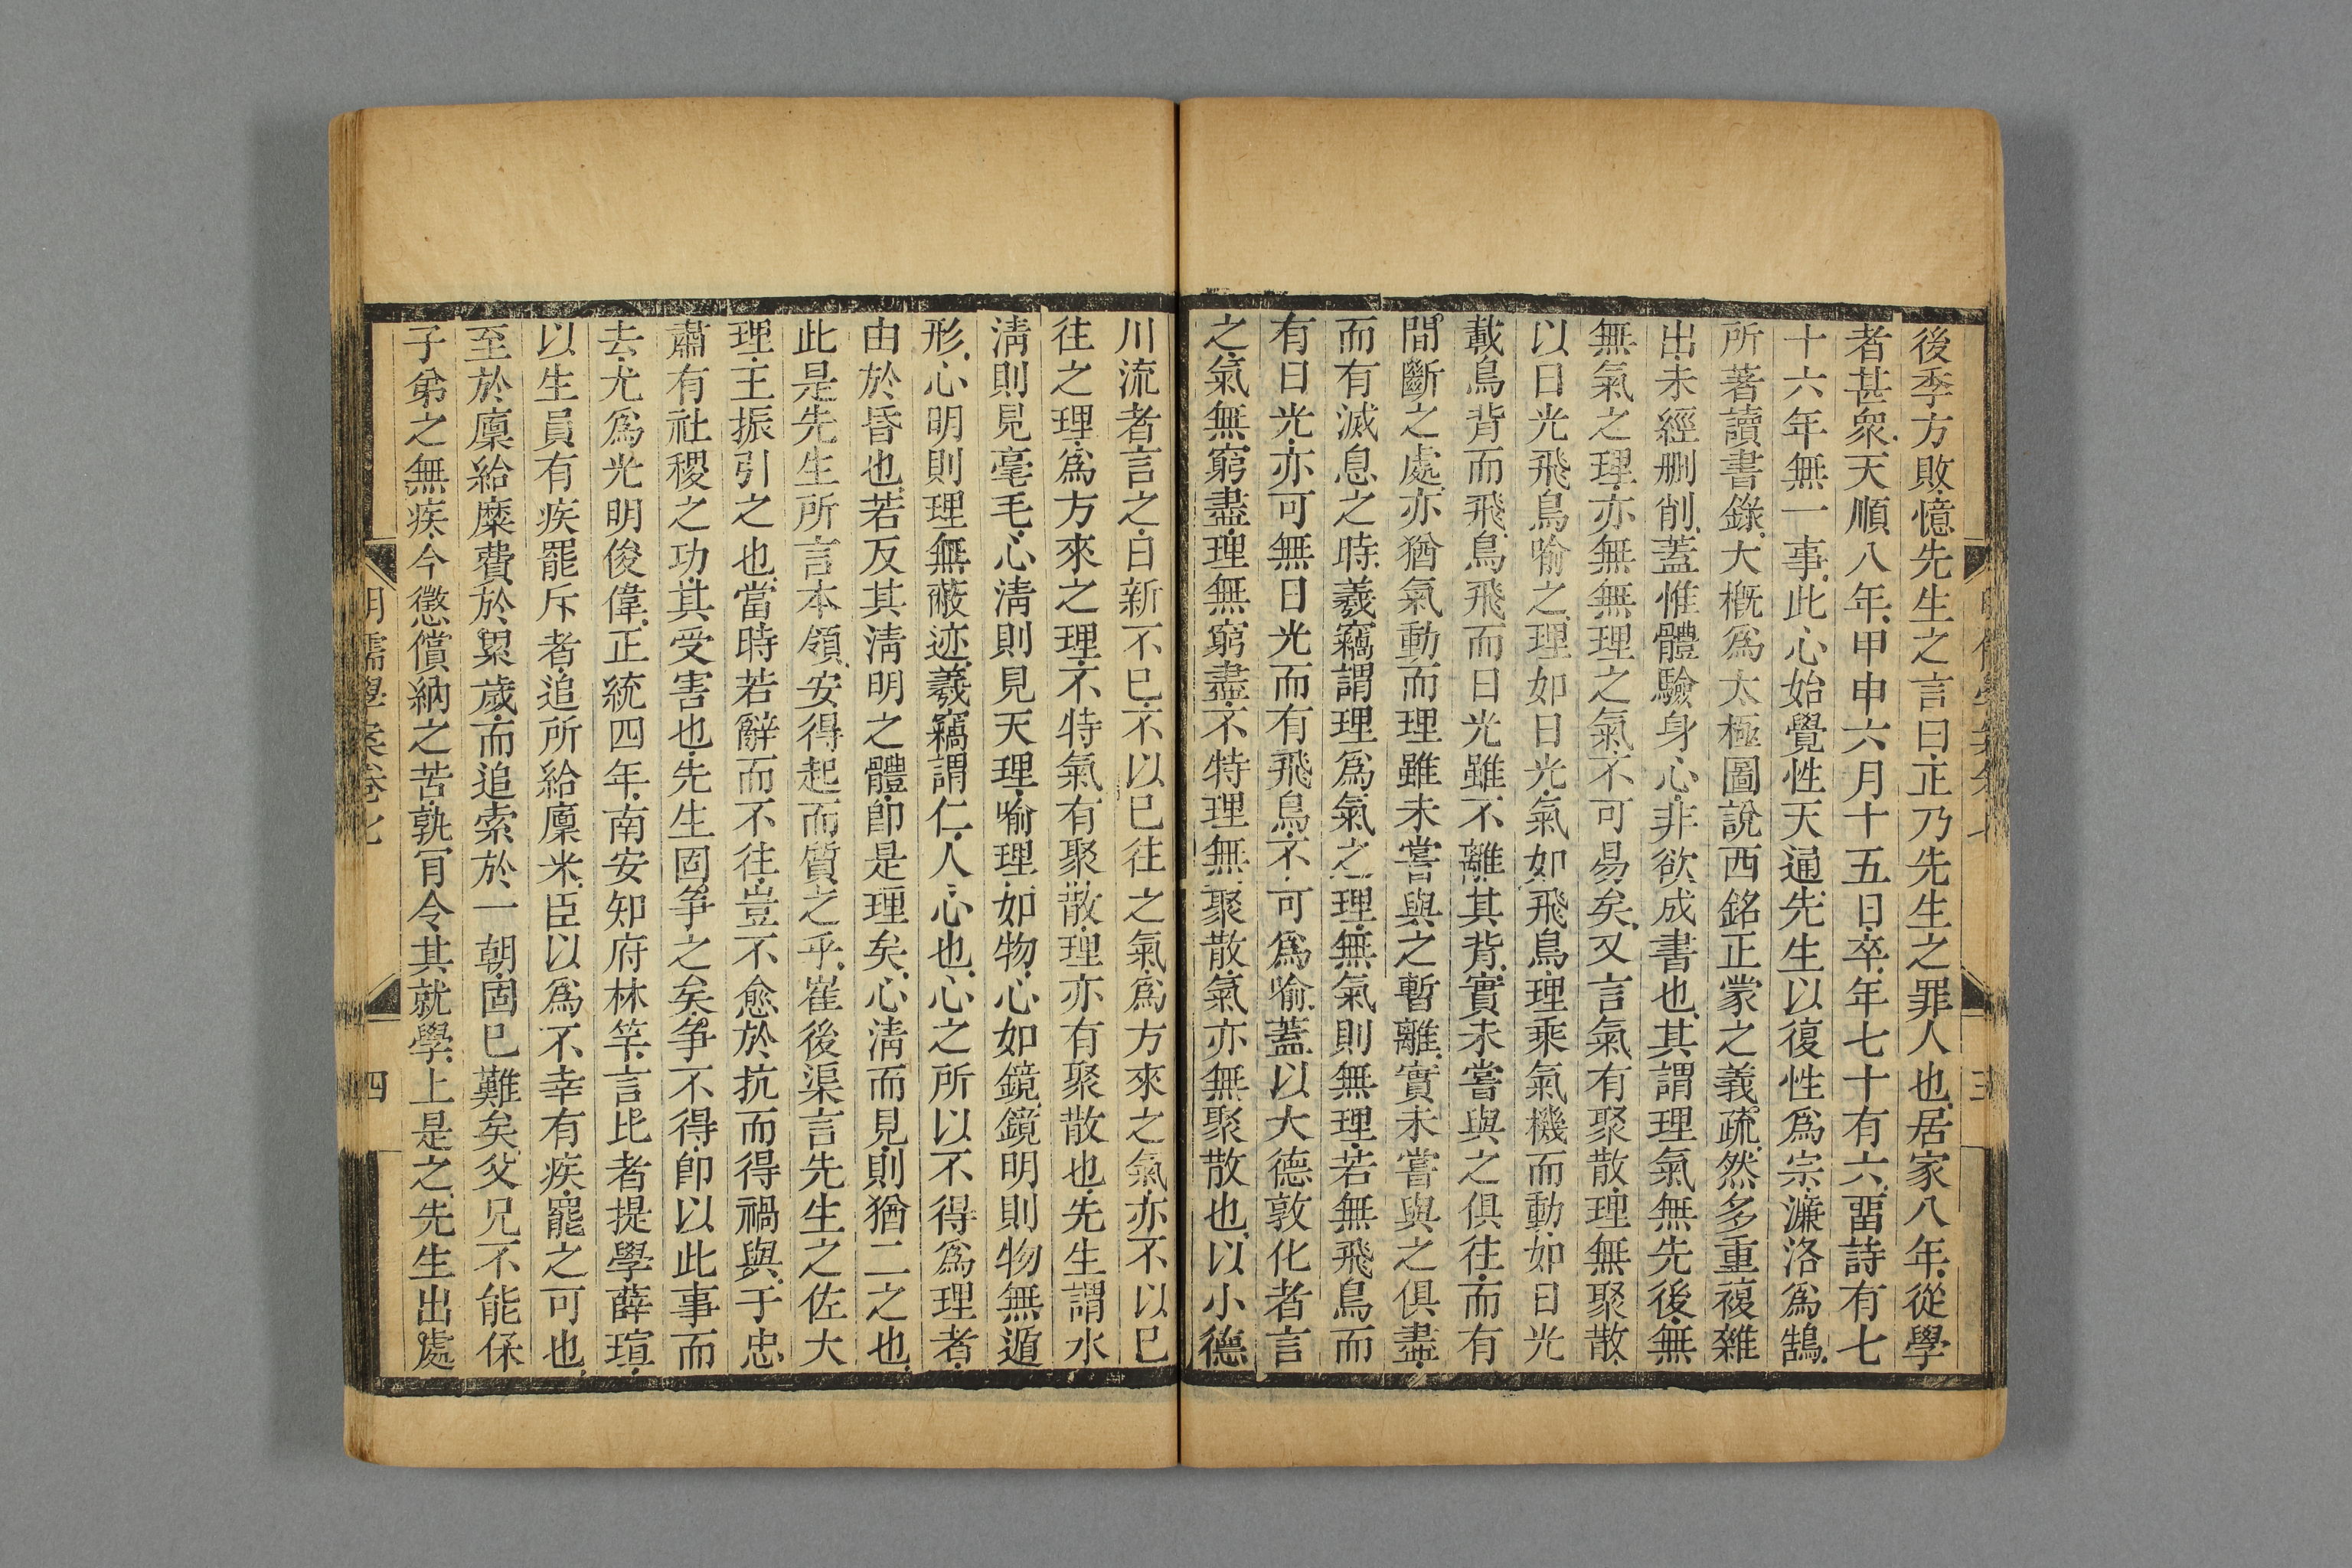 後季方敗憶先生之言曰正乃先生之罪人也居家八年從學
者甚衆天順八年甲申六月十五日卒年七十有六畱詩有七
十六年無一事此心始覺性天通先生以復性爲宗濂洛爲鵠
所著讀書錄大槪爲太極圖說西銘正蒙之義疏然多重複雜
出未經删削蓋惟體驗身心非欲成書也其謂理氣無先後無
無氣之理亦無無理之氣不可易矣又言氣有聚散理無聚散
以日光飛鳥喻之理如日光氣如飛鳥理乘氣機而動如日光
載鳥背而飛鳥飛而日光雖不離其背實未嘗與之俱往而有
間斷之處亦猶氣動而理雖未嘗與之暫離實未嘗與之俱盡
而有滅息之時羲竊謂理爲氣之理無氣則無理若無飛鳥而
有日光亦可無日光而有飛鳥不可爲喻蓋以大德敦化者言
之氣無窮盡理無窮盡不特理無聚散氣亦無聚散也以小德
川流者言之日新不已不以已往之氣爲方來之氣亦不以已
往之理爲方來之理不特氣有聚散理亦有聚散也先生謂水
淸則見毫毛心淸則見天理喻理如物心如鏡鏡明則物無遁
形心明則理無蔽迹羲竊謂仁人心也心之所以不得爲理者
由於昏也若反其淸明之體卽是理矣心淸而見則猶二之也
此是先生所言本領安得起而質之乎崔後渠言先生之佐大
理王振引之也當時若辭而不往豈不愈於抗而得禍與于忠
肅有社稷之功其受害也先生固爭之矣爭不得卽以此事而
去尤爲光明俊偉正統四年南安知府林竿言比者提學薛瑄
以生員有疾罷斥者追所給廩米臣以爲不幸有疾罷之可也
至於廩給糜費於累歲而追索於一朝固已難矣父兄不能保
子弟之無疾今懲償納之苦孰肎令其就學上是之先生出處
明儒學案卷七
四
三